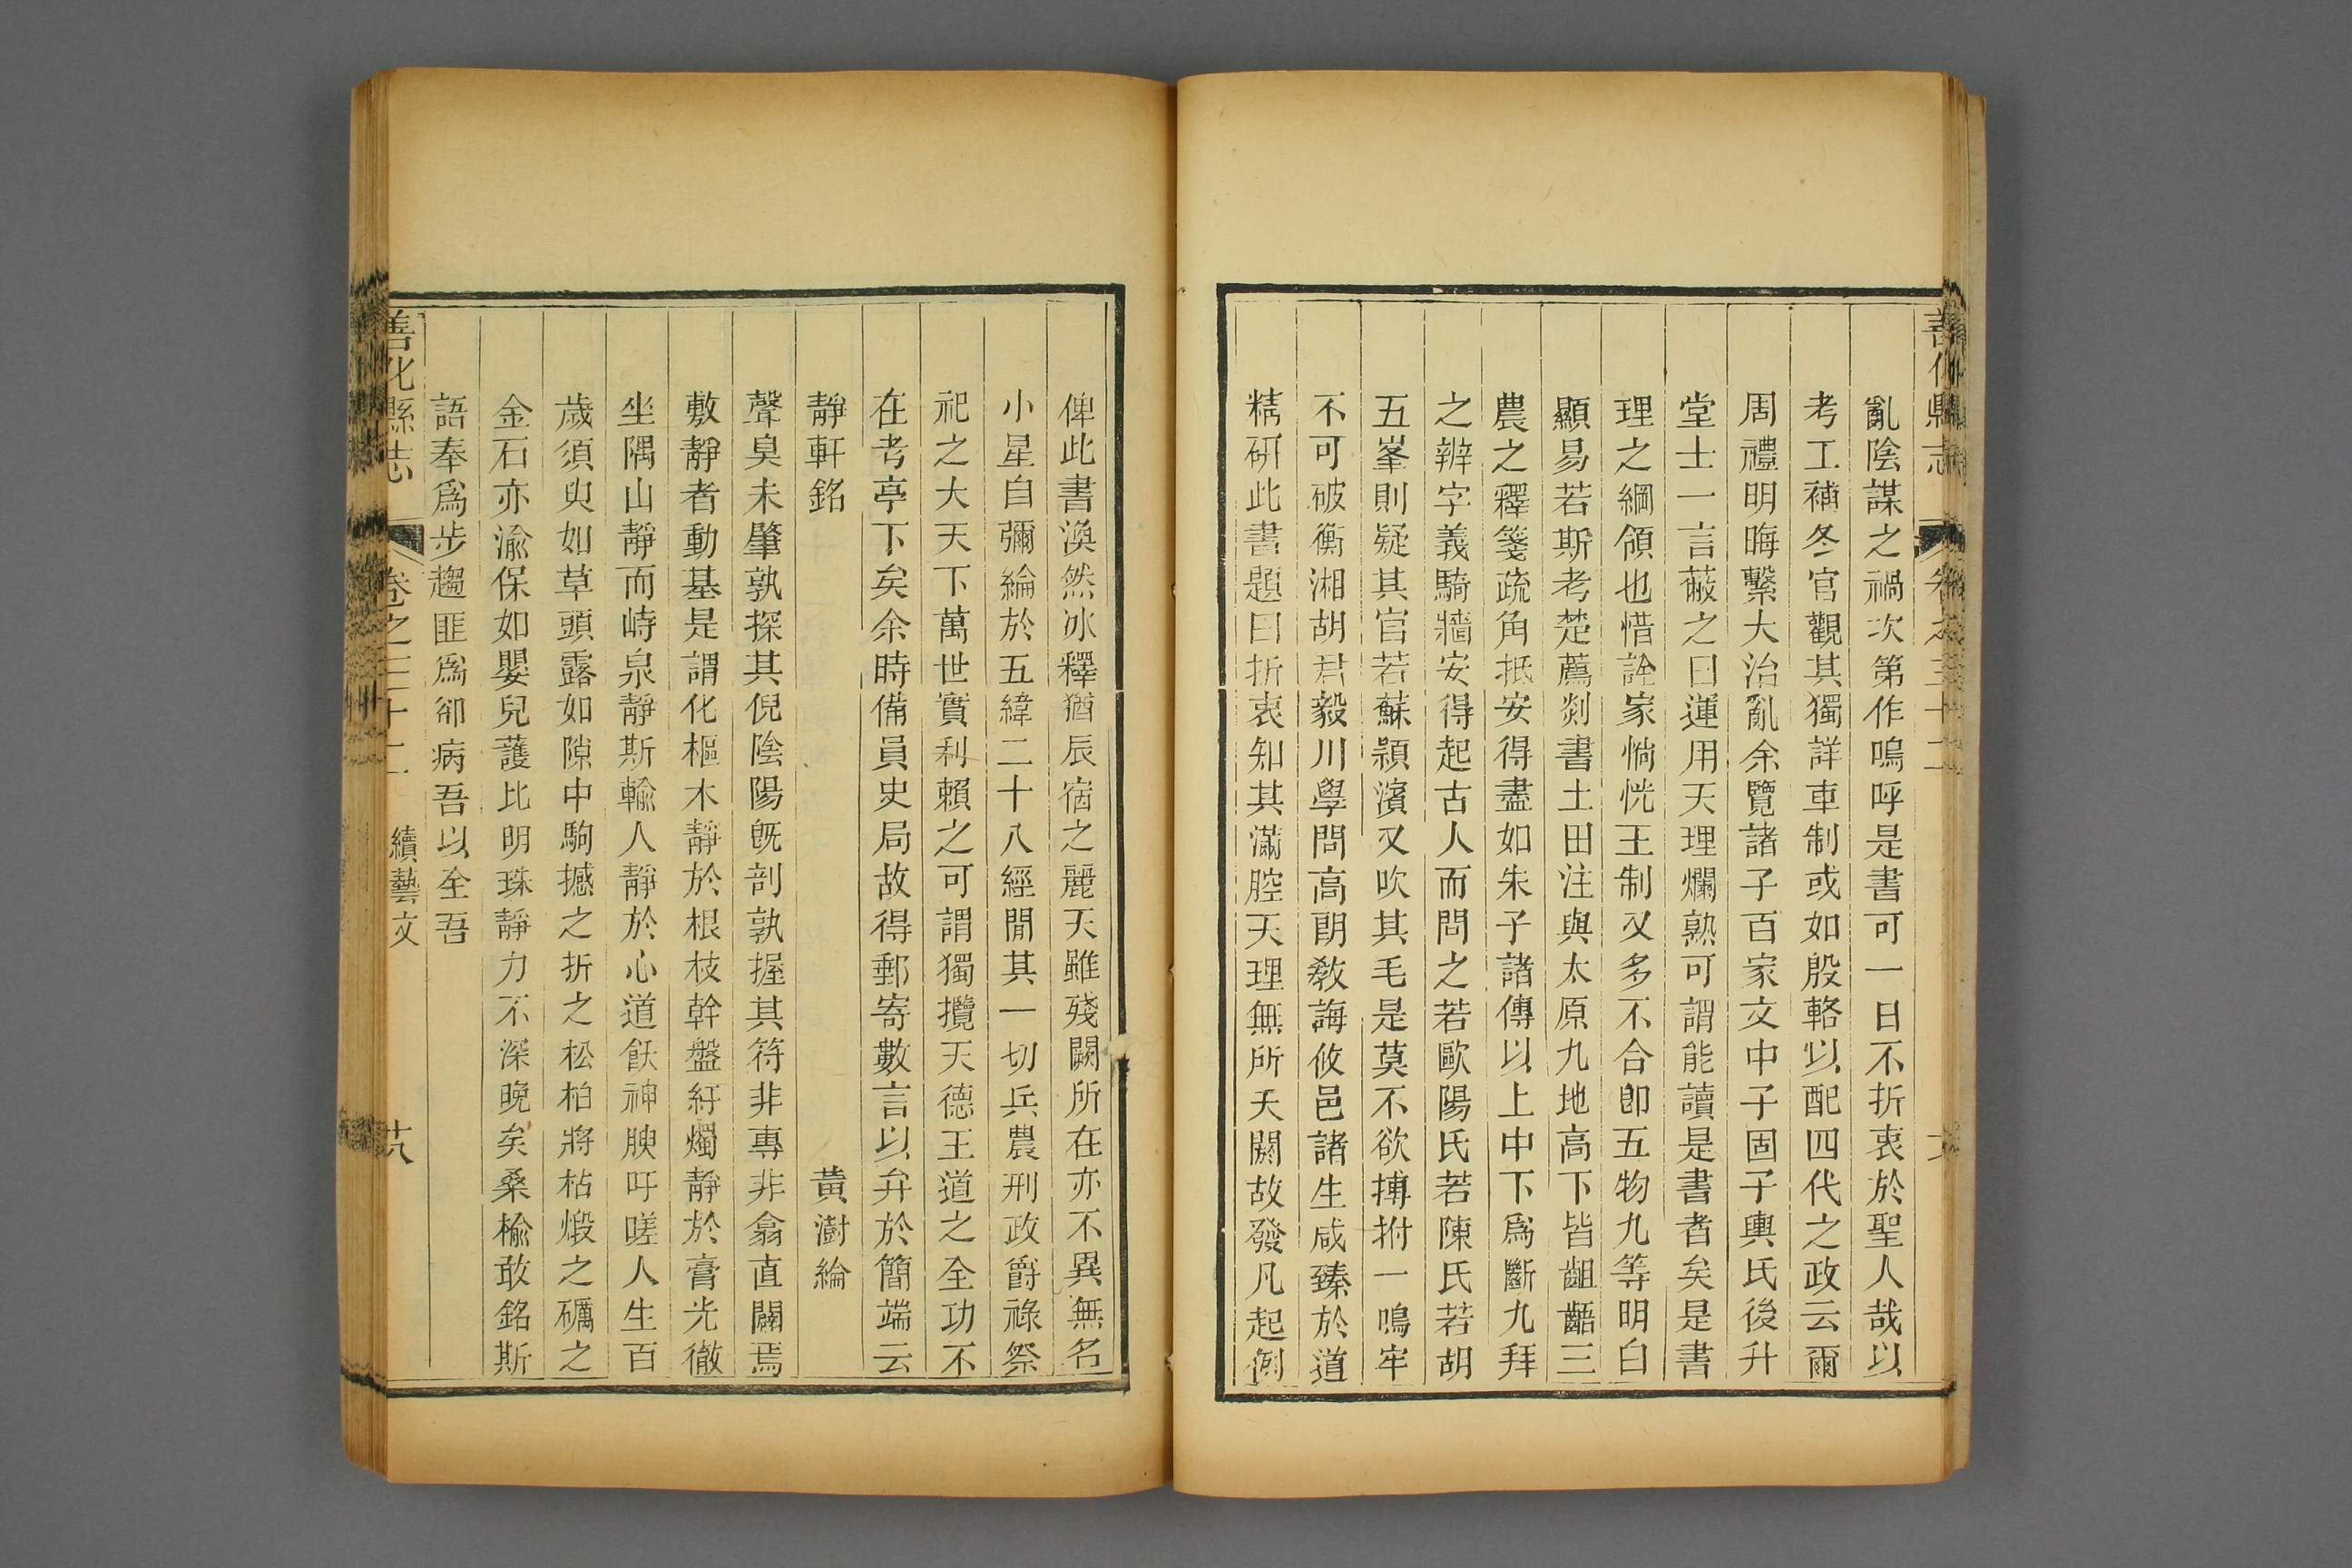 亂陰謀之禍次第作嗚呼是書可一日不折衷於聖人哉以
考工補冬官觀其獨詳車制或如殷輅以配四代之政云爾
周禮明晦繫大治亂余覽諸子百家文中子固子輿氏後升
堂士一言蔽之曰運用天理爛熟可謂能讀是書者矣是書
理之綱領也惜詮家惝恍王制又多不合即五物九等明白
顯易若斯考楚蔿剡書土田注與太原九地高下皆齟齬三
農之釋箋疏角抵安得盡如朱子諸傳以上中下爲斷九拜
之辨字義騎牆安得起古人而問之若歐陽氏若陳氏若胡
五峯則疑其官若蘇潁濱又吹其毛是莫不欲摶拊一鳴牢
不可破衡湘胡君毅川學問高朗敎誨攸邑諸生咸臻於道
精研此書題曰折衷知其滿腔天理無所夭閼故發凡起例
俾此書渙然冰釋猶辰宿之麗天雖殘闕所在亦不異無名
小星自彌綸於五緯二十八經閒其一切兵農刑政爵祿祭
祀之大天下萬世實利賴之可謂獨攬天德王道之全功不
在考亭下矣余時備員史局故得郵寄數言以弁於簡端云
靜軒銘 黃澍綸
聲臭未肇孰探其倪陰陽旣剖孰握其符非專非翕直闢焉
敷靜者動基是謂化樞木靜於根枝幹盤紆燭靜於膏光徹
坐隅山靜而峙泉靜斯輸人靜於心道飫神腴吁嗟人生百
歲須臾如草頭露如隙中駒撼之折之松柏將枯煅之礪之
金石亦渝保如嬰兒護比明珠靜力不深晚矣桑榆敢銘斯
語奉爲步趨匪爲卻病吾以全吾
善化縣志 卷之三十二 續藝文 廿八